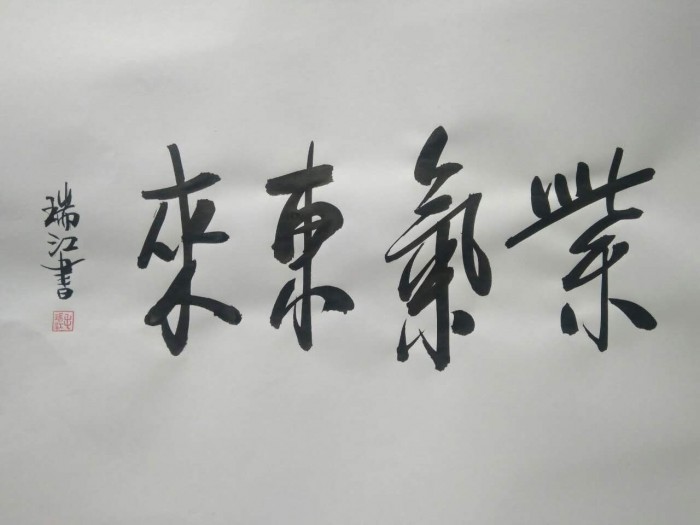 紫氣東來
瑞江書